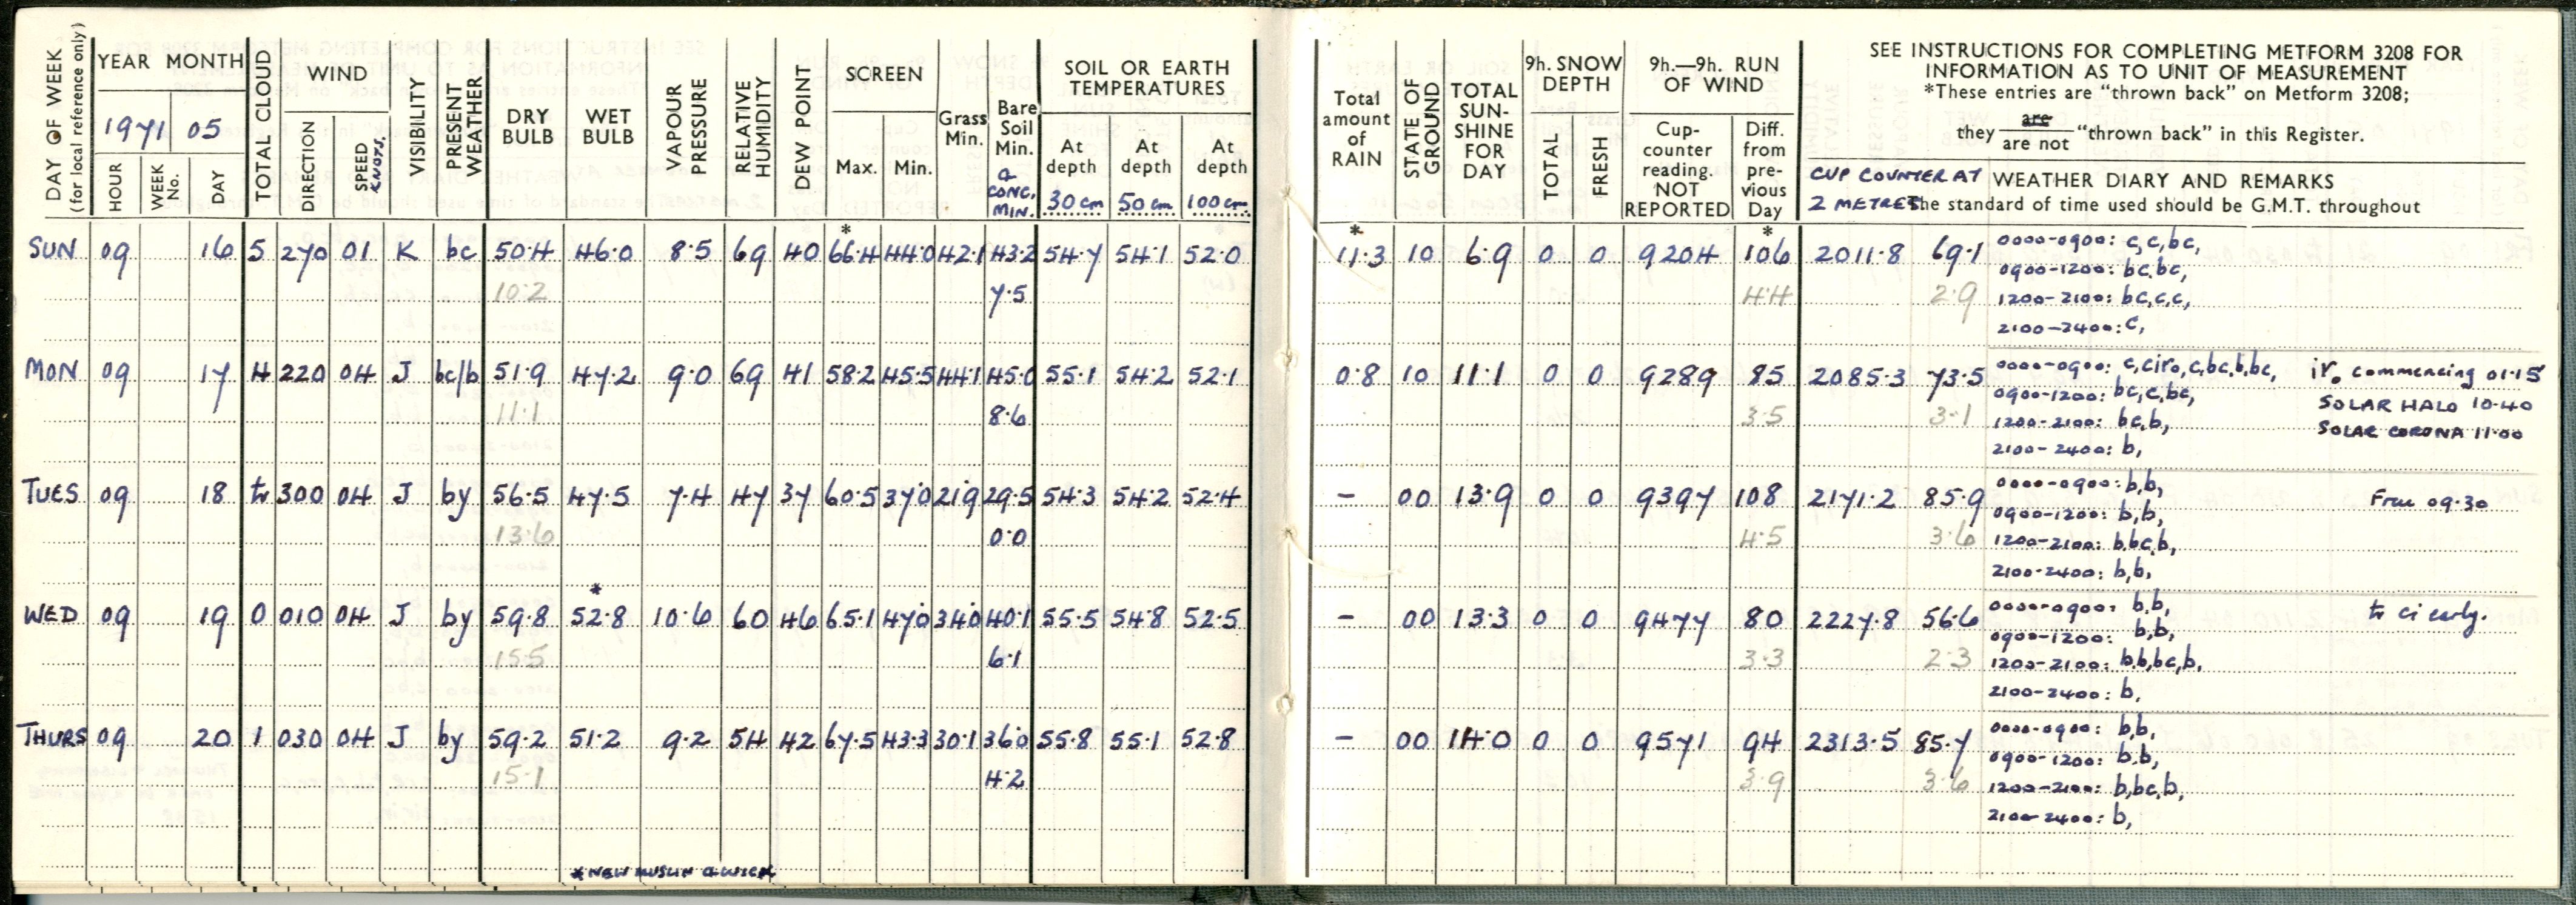 DAY OF WEEK
(for local reference only)
YEAR MONTH
1971 05
HOUR
WEEK No.
DAY
TOTAL CLOUD
WIND
DIRECTION
SPEED KNOTS.
VISIBILITY
PRESENT WEATHER
DRY BULB
WET BULB
VAPOUR PRESSURE
RELATIVE HUMIDITY
DEW POINT
SCREEN
Max. Min.
Grass Min.
Bare Soil Min.
a CONC. MIN.
SOIL OR EARTH TEMPERATURES
At depth 30 cm
At depth 50 cm
At depth 100 cm
Total amount of RAIN
STATE OF GROUND
TOTAL SUN-SHINE FOR DAY
9h. SNOW DEPTH
TOTAL
FRESH
9h.—9h. RUN OF WIND
Cup-counter reading. NOT REPORTED
Diff. from pre-vious Day
SEE INSTRUCTIONS FOR COMPLETING METFORM 3208 FOR
INFORMATION AS TO UNIT OF MEASUREMENT
*These entries are "thrown back" on Metform 3208;
they are / are not "thrown back" in this Register.
CUP COUNTER AT
2 METRES
WEATHER DIARY AND REMARKS
The standard of time used should be G.M.T. throughout
SUN 09 16 5 270 01 K bc 50.4 46.0 8.5 69 40 *66.4 44.0 42.1 43.2 54.7 54.1 52.0 *11.3 10 6.9 0 0 9204 *106 2011.8 69.1 0000-0900: c,c,bc,
0900-1200: bc,bc,
10.2 7.5 44 2.9 1200-2100: bc,c,c,
2100-2400: c,
MON 09 17 4 220 04 J bc/b 51.9 47.2 9.0 69 41 58.2 45.5 44.1 45.0 55.1 54.2 52.1 0.8 10 11.1 0 0 9289 85 2085.3 73.5 0000-0900: c,ciro,c,bc,b,bc, iro commencing 01.15
0900-1200: bc,c,bc, SOLAR HALO 10.40
11.1 8.6 3.5 3.1 1200-2100: bc,b, SOLAR CORONA 11.00
2100-2400: b,
TUES 09 18 tr 300 04 J by 56.5 47.5 7.4 47 37 60.5 37.0 21.9 29.5 54.3 54.2 52.4 – 00 13.9 0 0 9397 108 2171.2 85.9 0000-0900: b,b, From 09.30
0900-1200: b,b,
13.6 0.0 4.5 3.6 1200-2100: b,bc,b,
2100-2400: b,b,
WED 09 19 0 010 04 J by 59.8 *52.8 10.6 60 46 65.1 47.0 34.0 40.1 55.5 54.8 52.5 – 00 13.3 0 0 9477 80 2227.8 56.6 0000-0900: b,b, tr ci early.
0900-1200: b,b,
15.5 6.1 3.3 2.3 1200-2100: b,b,bc,b,
2100-2400: b,
THURS 09 20 1 030 04 J by 59.2 51.2 9.2 54 42 67.5 43.3 30.1 36.0 55.8 55.1 52.8 – 00 14.0 0 0 9571 94 2313.5 85.7 0000-0900: b,b,
0900-1200: b,b,
15.1 4.2 3.9 3.6 1200-2100: b,bc,b,
2100-2400: b,
* NEW MUSLIN & WICK